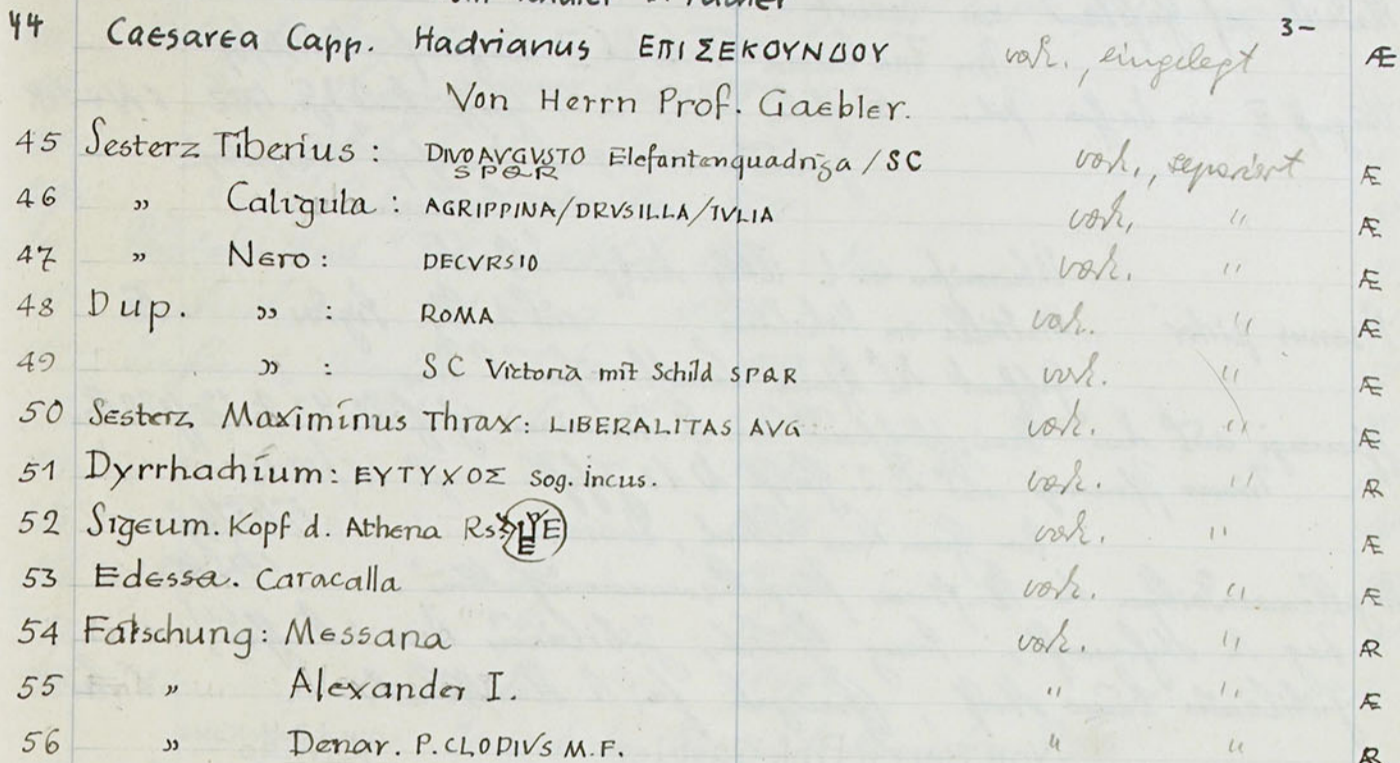 44 Caesarea Capp. Hadrianus ΕΠΙ ΣΕΚΟΥΝΔΟΥ vorh., eingelegt 3- Æ
Von Herrn Prof. Gaebler.
45 Sesterz Tiberius: DIVO AVGVSTO Elefantenquadriga / SC vorh., separiert Æ
SPQR
46 " Caligula: AGRIPPINA/DRVSILLA/IVLIA vorh, " Æ
47 " Nero: DECVRSIO vorh. " Æ
48 Dup. " : ROMA vorh. " Æ
49 " : SC Victoria mit Schild SPQR vorh. " Æ
50 Sesterz Maximinus Thrax: LIBERALITAS AVG vorh. " Æ
51 Dyrrhachium: ΕΥΤΥΧΟΣ sog. incus. vorh. " AR
52 Sigeum. Kopf d. Athena Rs vorh. " Æ
53 Edessa. Caracalla vorh. " Æ
54 Fälschung: Messana vorh. " AR
55 " Alexander I. " " Æ
56 " Denar. P. CLODIVS M.F. " " AR